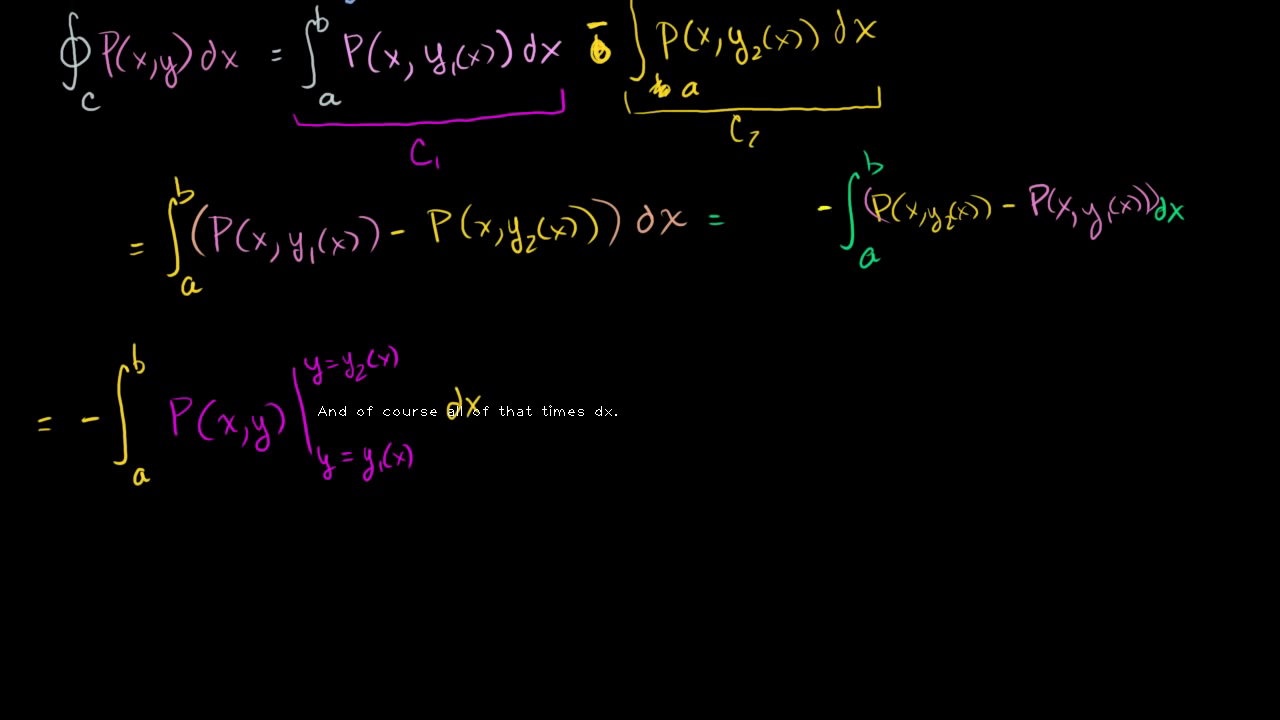 ∮_C P(x,y) dx = ∫_a^b P(x, y₁(x)) dx - ∫_a P(x, y₂(x)) dx
C₁ C₂
= ∫_a^b (P(x, y₁(x)) - P(x, y₂(x))) dx = - ∫_a^b (P(x, y₂(x)) - P(x, y₁(x))) dx
= - ∫_a^b P(x,y) |_{y = y₁(x)}^{y = y₂(x)} dx
And of course all of that times dx.